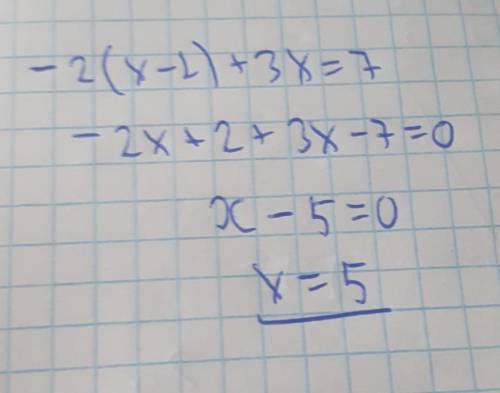 -2(x-1)+3x=7
-2x+2+3x-7=0
x-5=0
x=5